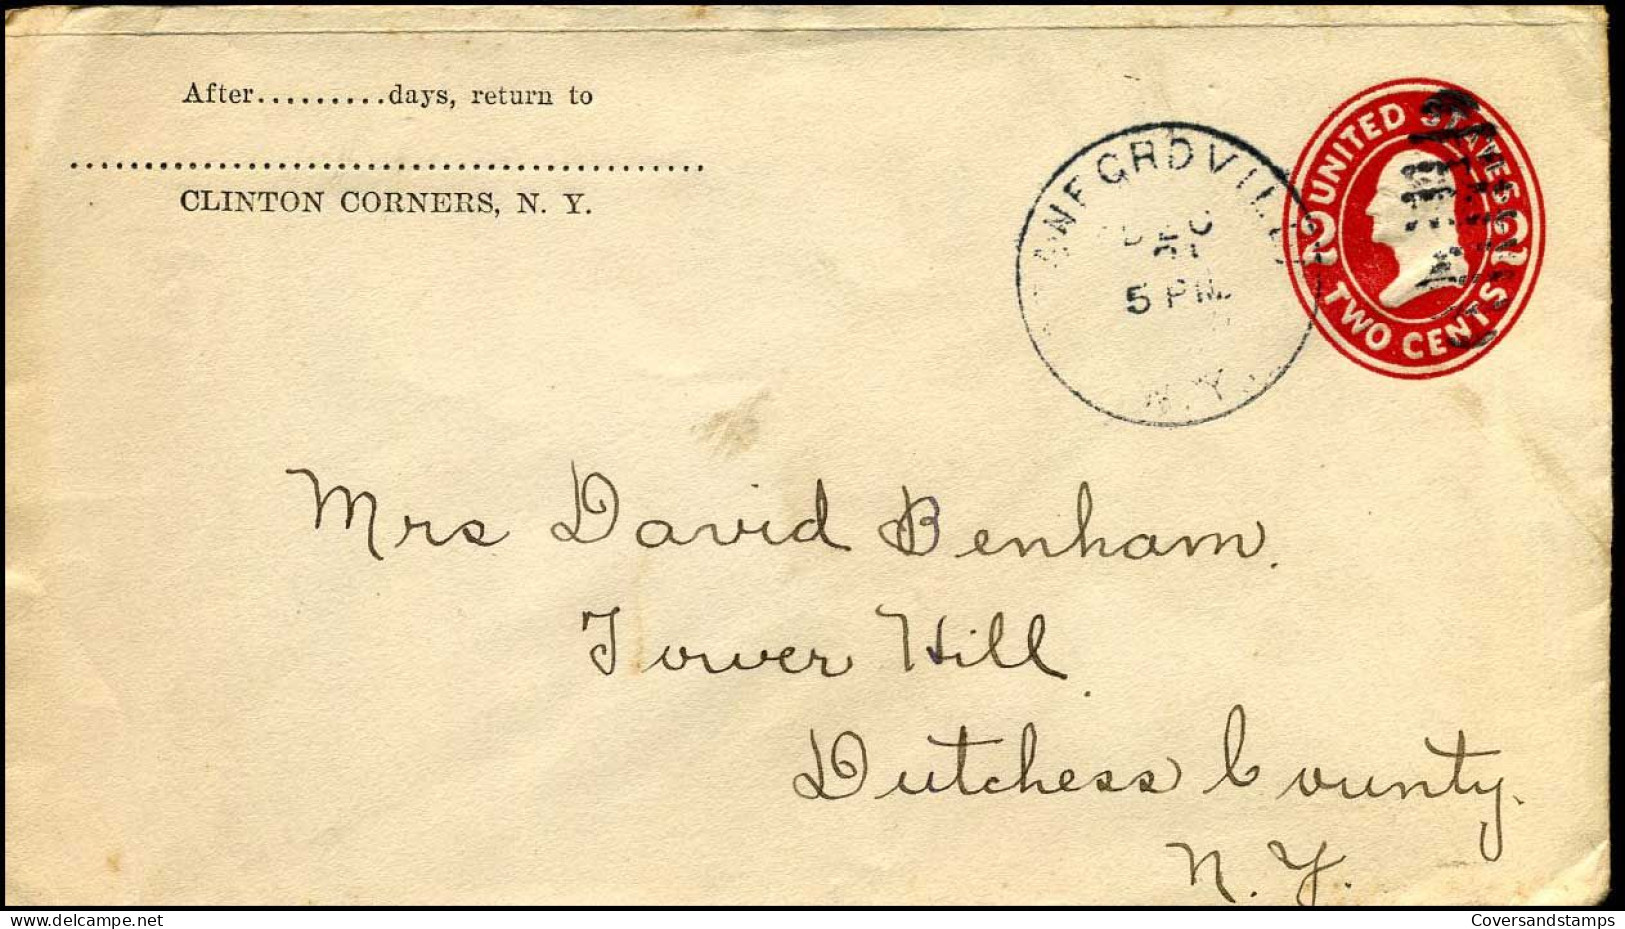 After.........days, return to
CLINTON CORNERS, N. Y.
UNITED STATES
2 2
TWO CENTS
DEC
5 PM
N.Y.
Mrs David Benham.
Tower Hill
Dutchess County.
N. Y.
www.delcampe.net
Coversandstamps